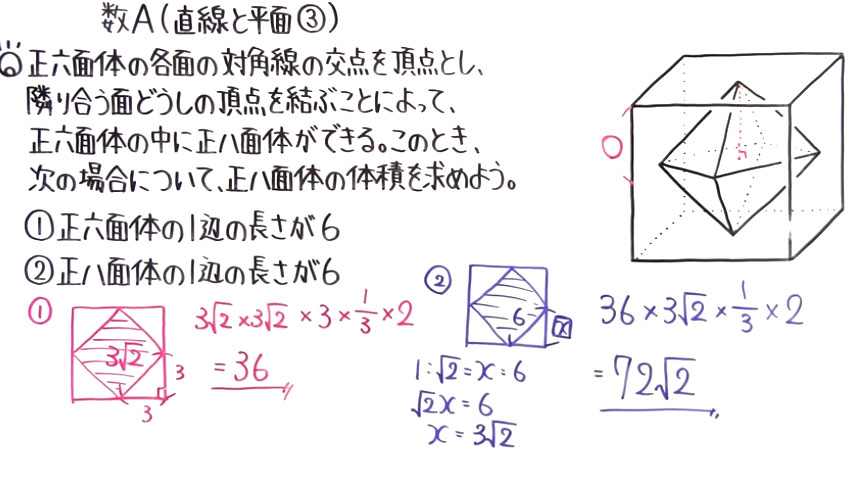 数A(直線と平面③)
正六面体の各面の対角線の交点を頂点とし、
隣り合う面どうしの頂点を結ぶことによって、
正六面体の中に正八面体ができる。このとき、
次の場合について、正八面体の体積を求めよう。
①正六面体の1辺の長さが6
②正八面体の1辺の長さが6
①
3√2
3
3
3√2×3√2×3×1/3×2
=36
②
6
x
1:√2=x:6
√2x=6
x=3√2
36×3√2×1/3×2
=72√2